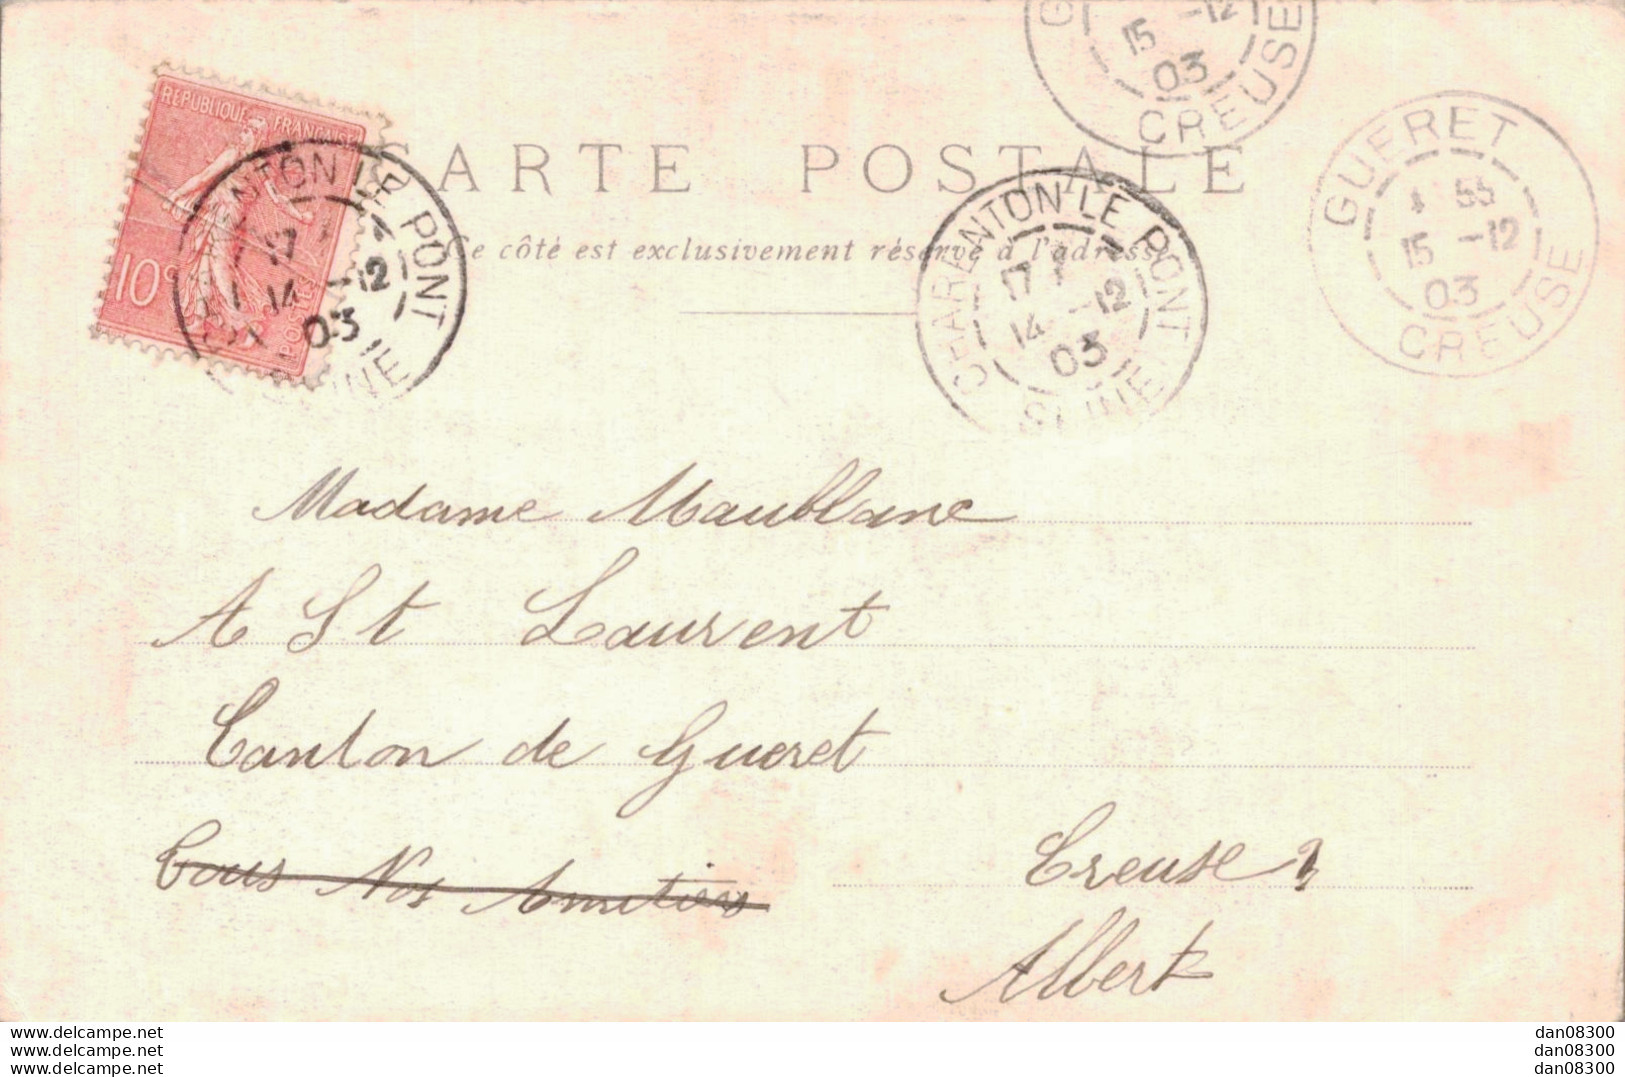 GUERET
15 -12
03
CREUSE
REPUBLIQUE FRANÇAISE
10c
POSTES
CARTE POSTALE
Ce côté est exclusivement réservé à l'adresse
CHARENTON LE PONT
17
14 -12
03
SEINE
CHARENTON LE PONT
17
14 -12
03
SEINE
GUERET
55
15 -12
03
CREUSE
Madame Maublanc
A St Laurent
Canton de Gueret
Tous Nos Amitiers
Creuse
Albert
www.delcampe.net
www.delcampe.net
www.delcampe.net
dan08300
dan08300
dan08300